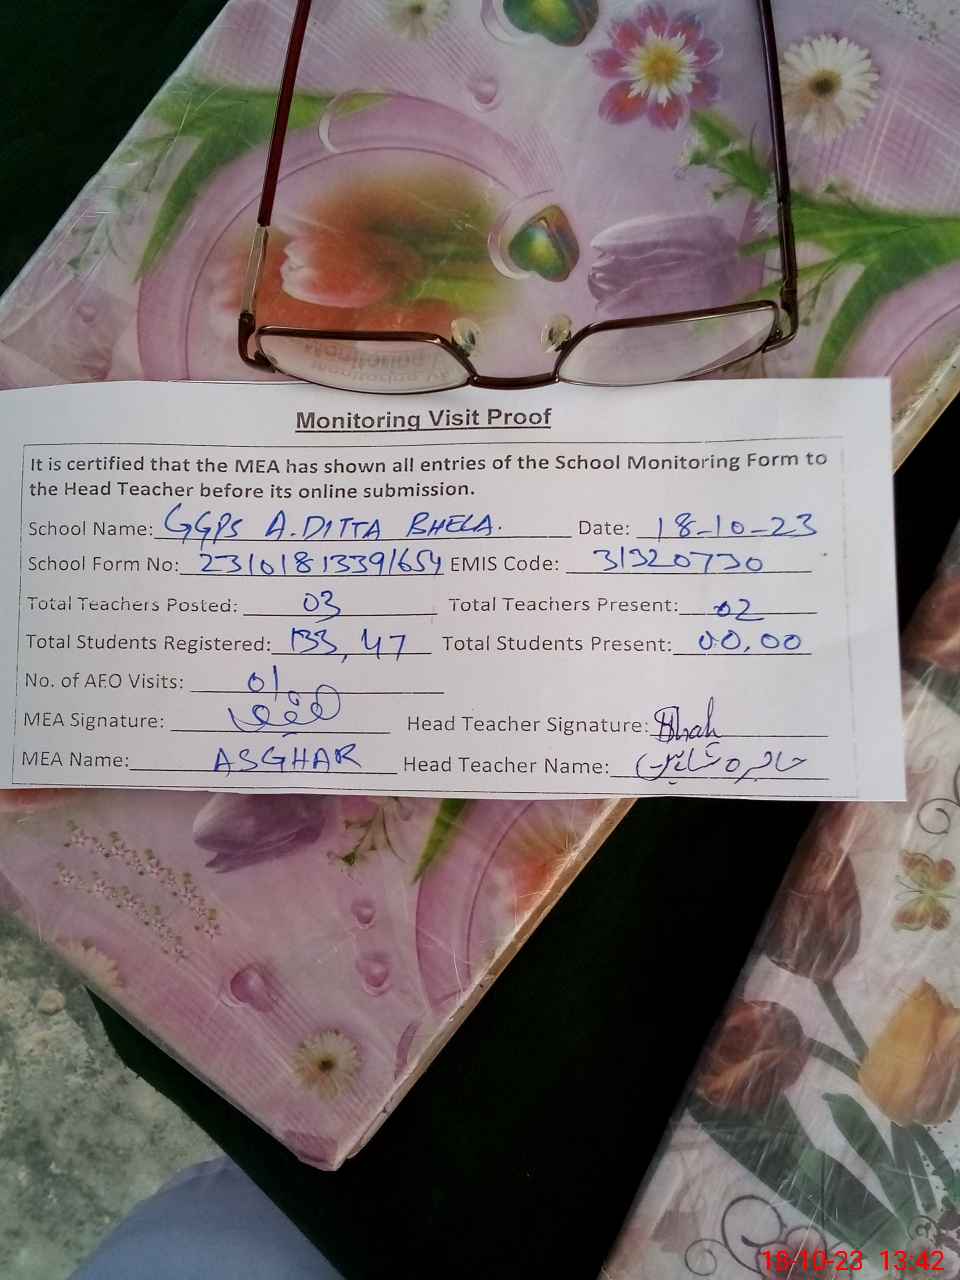 Monitoring Visit Proof
It is certified that the MEA has shown all entries of the School Monitoring Form to
the Head Teacher before its online submission.
School Name: GGPS A.DITTA BHELA. Date: 18-10-23
School Form No: 23101813391654 EMIS Code: 31320730
Total Teachers Posted: 03 Total Teachers Present: 02
Total Students Registered: 133, 47 Total Students Present: 00,00
No. of AEO Visits: 01
MEA Signature: Head Teacher Signature:
MEA Name: ASGHAR Head Teacher Name:
18-10-23 13:42